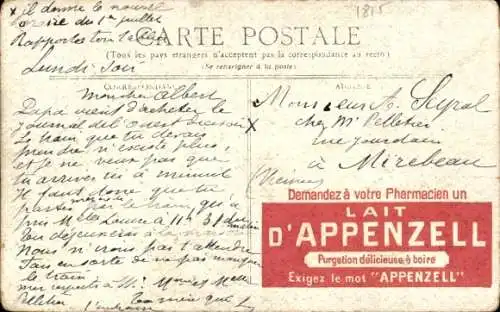 x il donne le nouvel
horaire du 1er juillet
Rapporte ton
Lundi soir
1815
CARTE POSTALE
(Tous les pays étrangers n'acceptent pas la correspondance au recto)
(Se renseigner à la poste)
CORRESPONDANCE
ADRESSE
Mon cher Albert
Papa vient d'acheter le
journal de l'Ouest x
le train que tu devais
prendre n'existe plus,
et je ne veux pas que
tu arrives ici à minuit
Il faut donc que tu
partes par le train qui
11h 31 du matin
tu déjeuneras à la
Nous n'irons pas t'attendre
Fais en sorte de ne pas manquer
le train
mes respects à Mr Mme
Pelletier
Monsieur A. Seyral
chez Mr Pelletier
rue Jourdain
à Mirebeau
(Vienne)
Demandez à votre Pharmacien un
LAIT
D'APPENZELL
Purgation délicieuse à boire
Exigez le mot "APPENZELL"